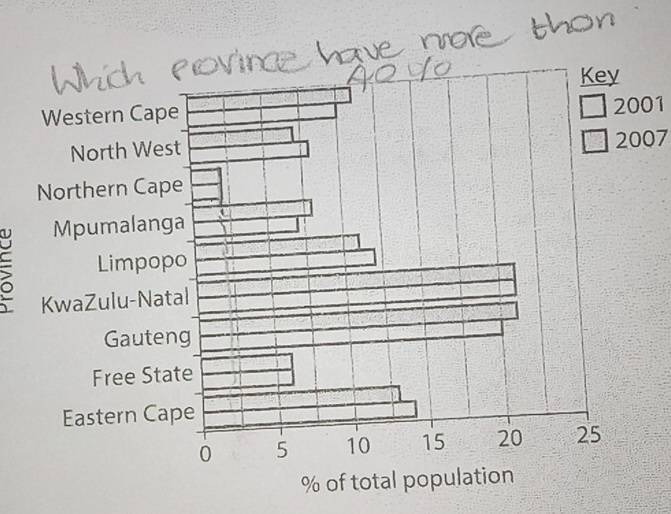 Which province have more than
40%
Key
2001
2007
Western Cape
North West
Northern Cape
Mpumalanga
Limpopo
KwaZulu-Natal
Gauteng
Free State
Eastern Cape
Province
0 5 10 15 20 25
% of total population